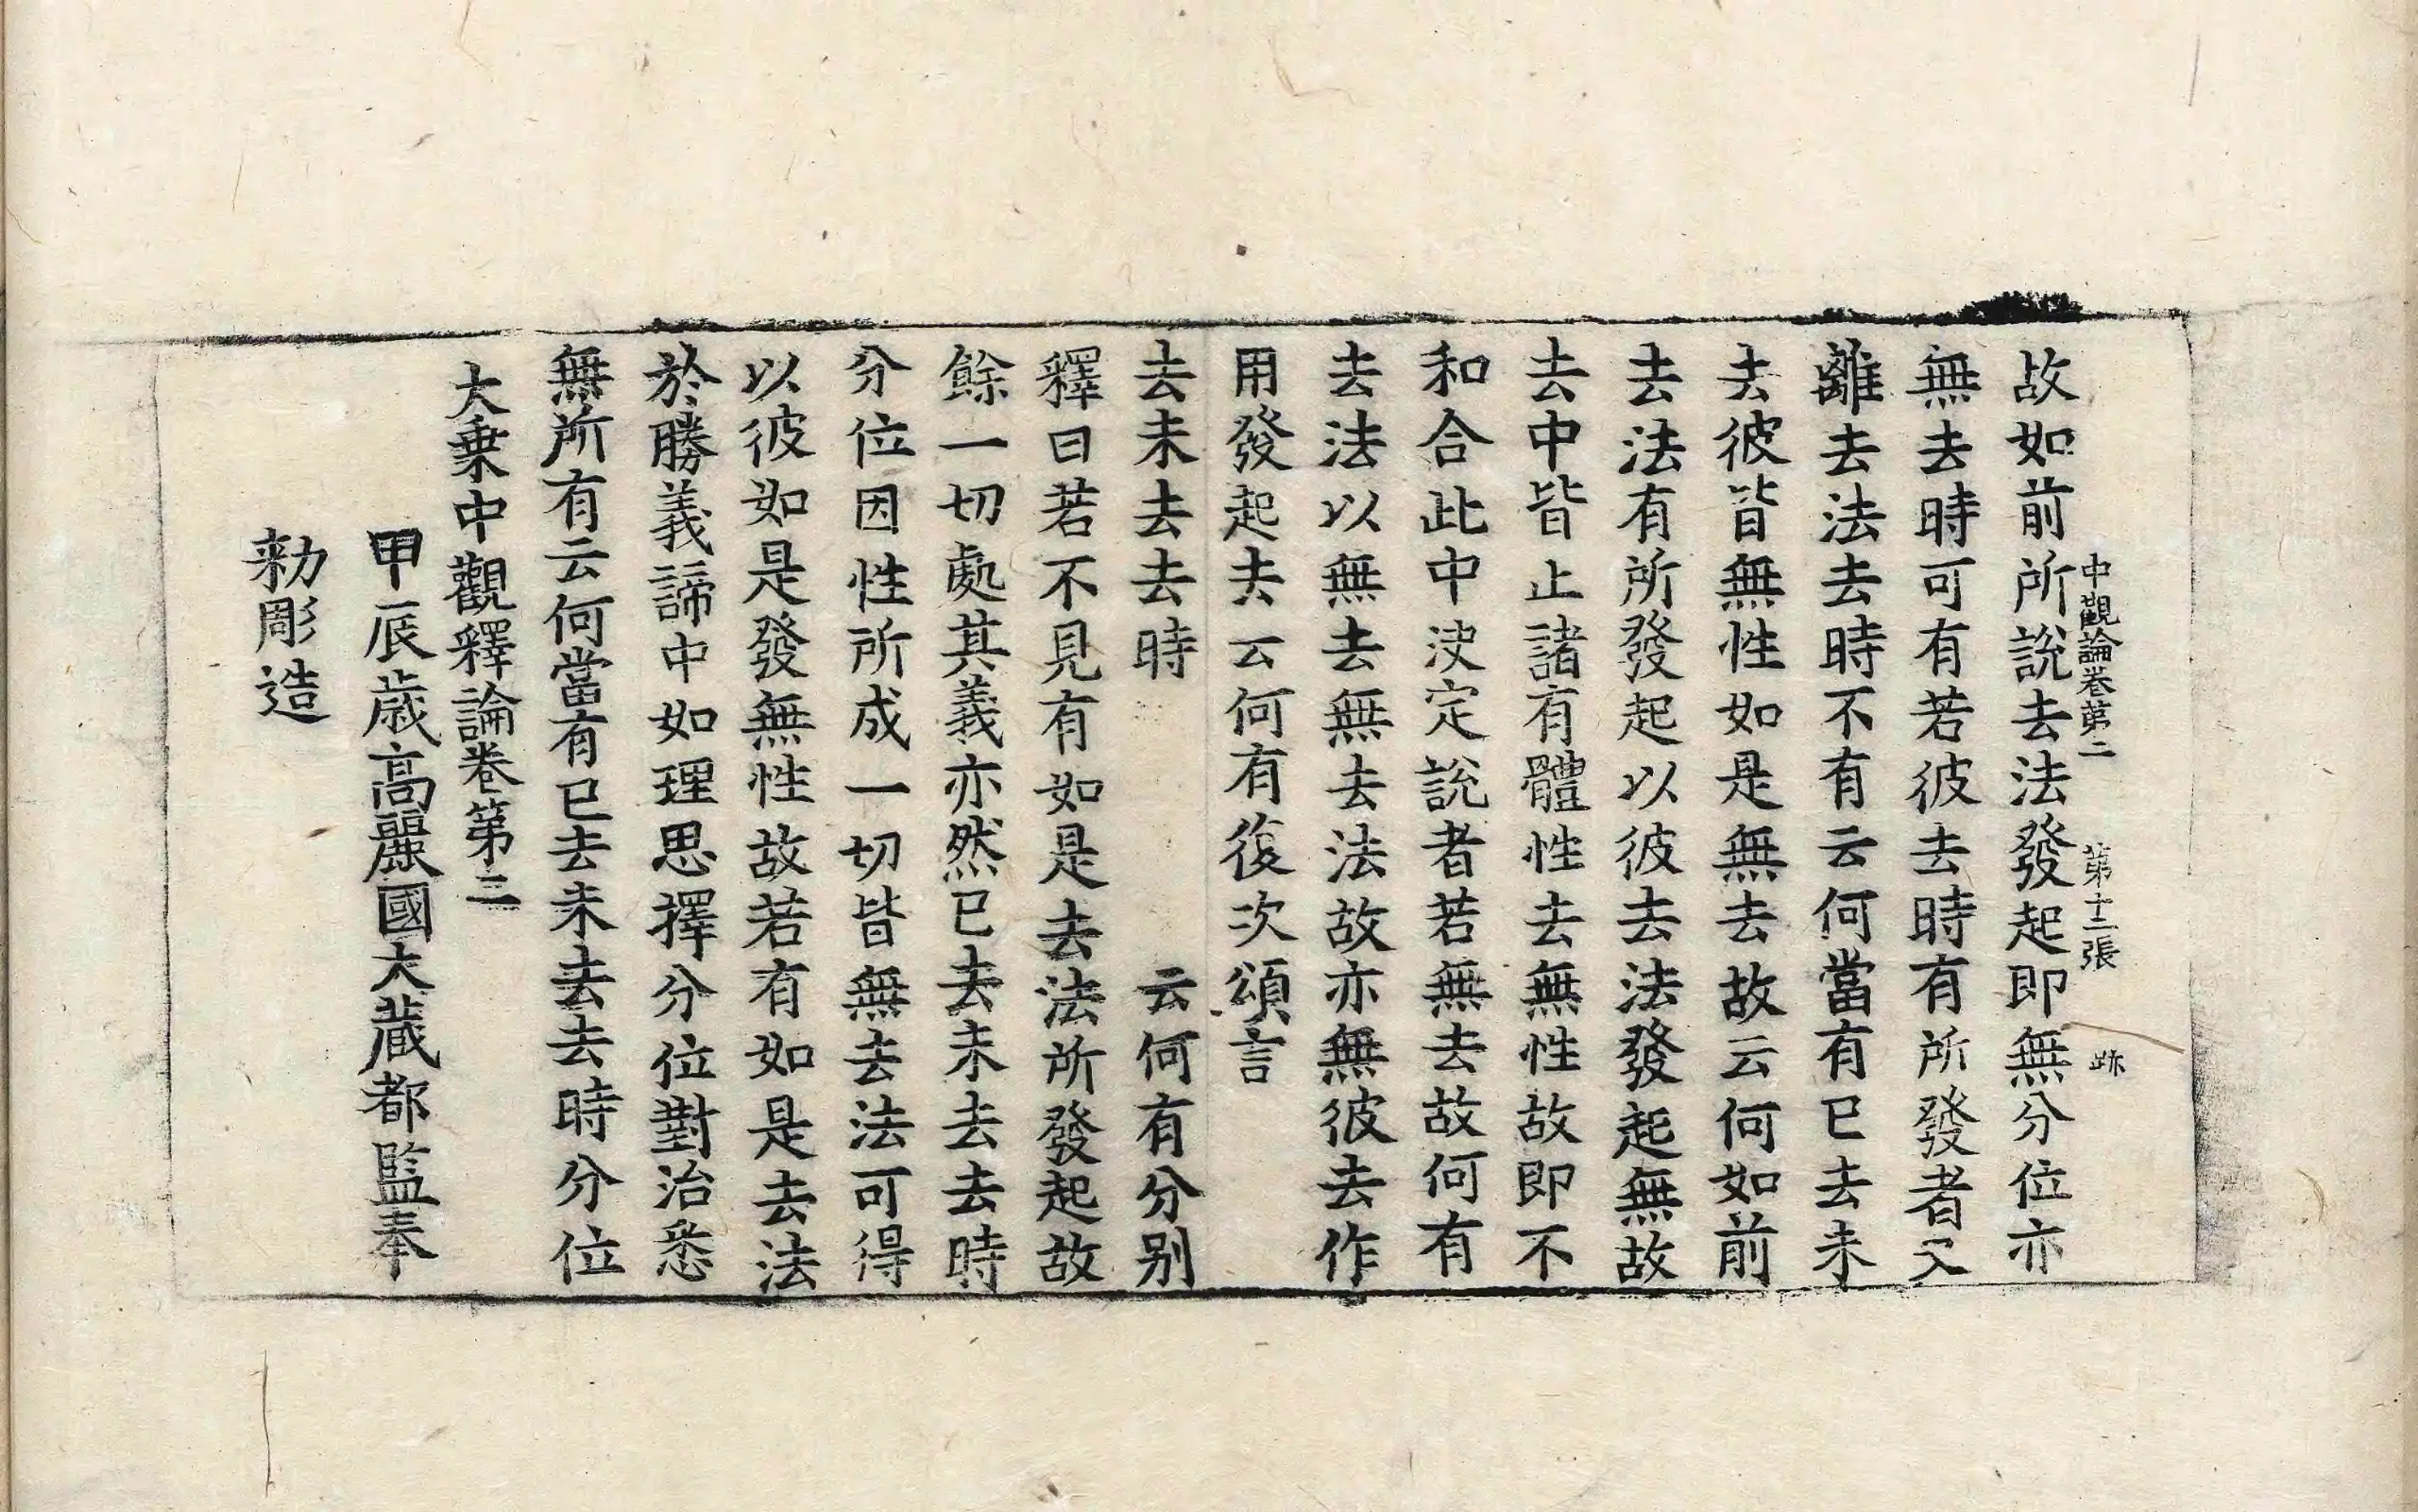 中觀論卷第二 第十二張 跡
故如前所說去法發起即無分位亦
無去時可有若彼去時有所發者又
離去法去時不有云何當有已去未
去彼皆無性如是無去故云何如前
去法有所發起以彼去法發起無故
去中皆止諸有體性去無性故即不
和合此中決定說者若無去故何有
去法以無去無去法故亦無彼去作
用發起去云何有復次頌言
去未去去時 云何有分别
釋曰若不見有如是去法所發起故
餘一切處其義亦然已去未去去時
分位因性所成一切皆無去法可得
以彼如是發無性故若有如是去法
於勝義諦中如理思擇分位對治悉
無所有云何當有已去未去去時分位
大乗中觀釋論卷第二
甲辰歲高麗國大藏都監奉
勅彫造